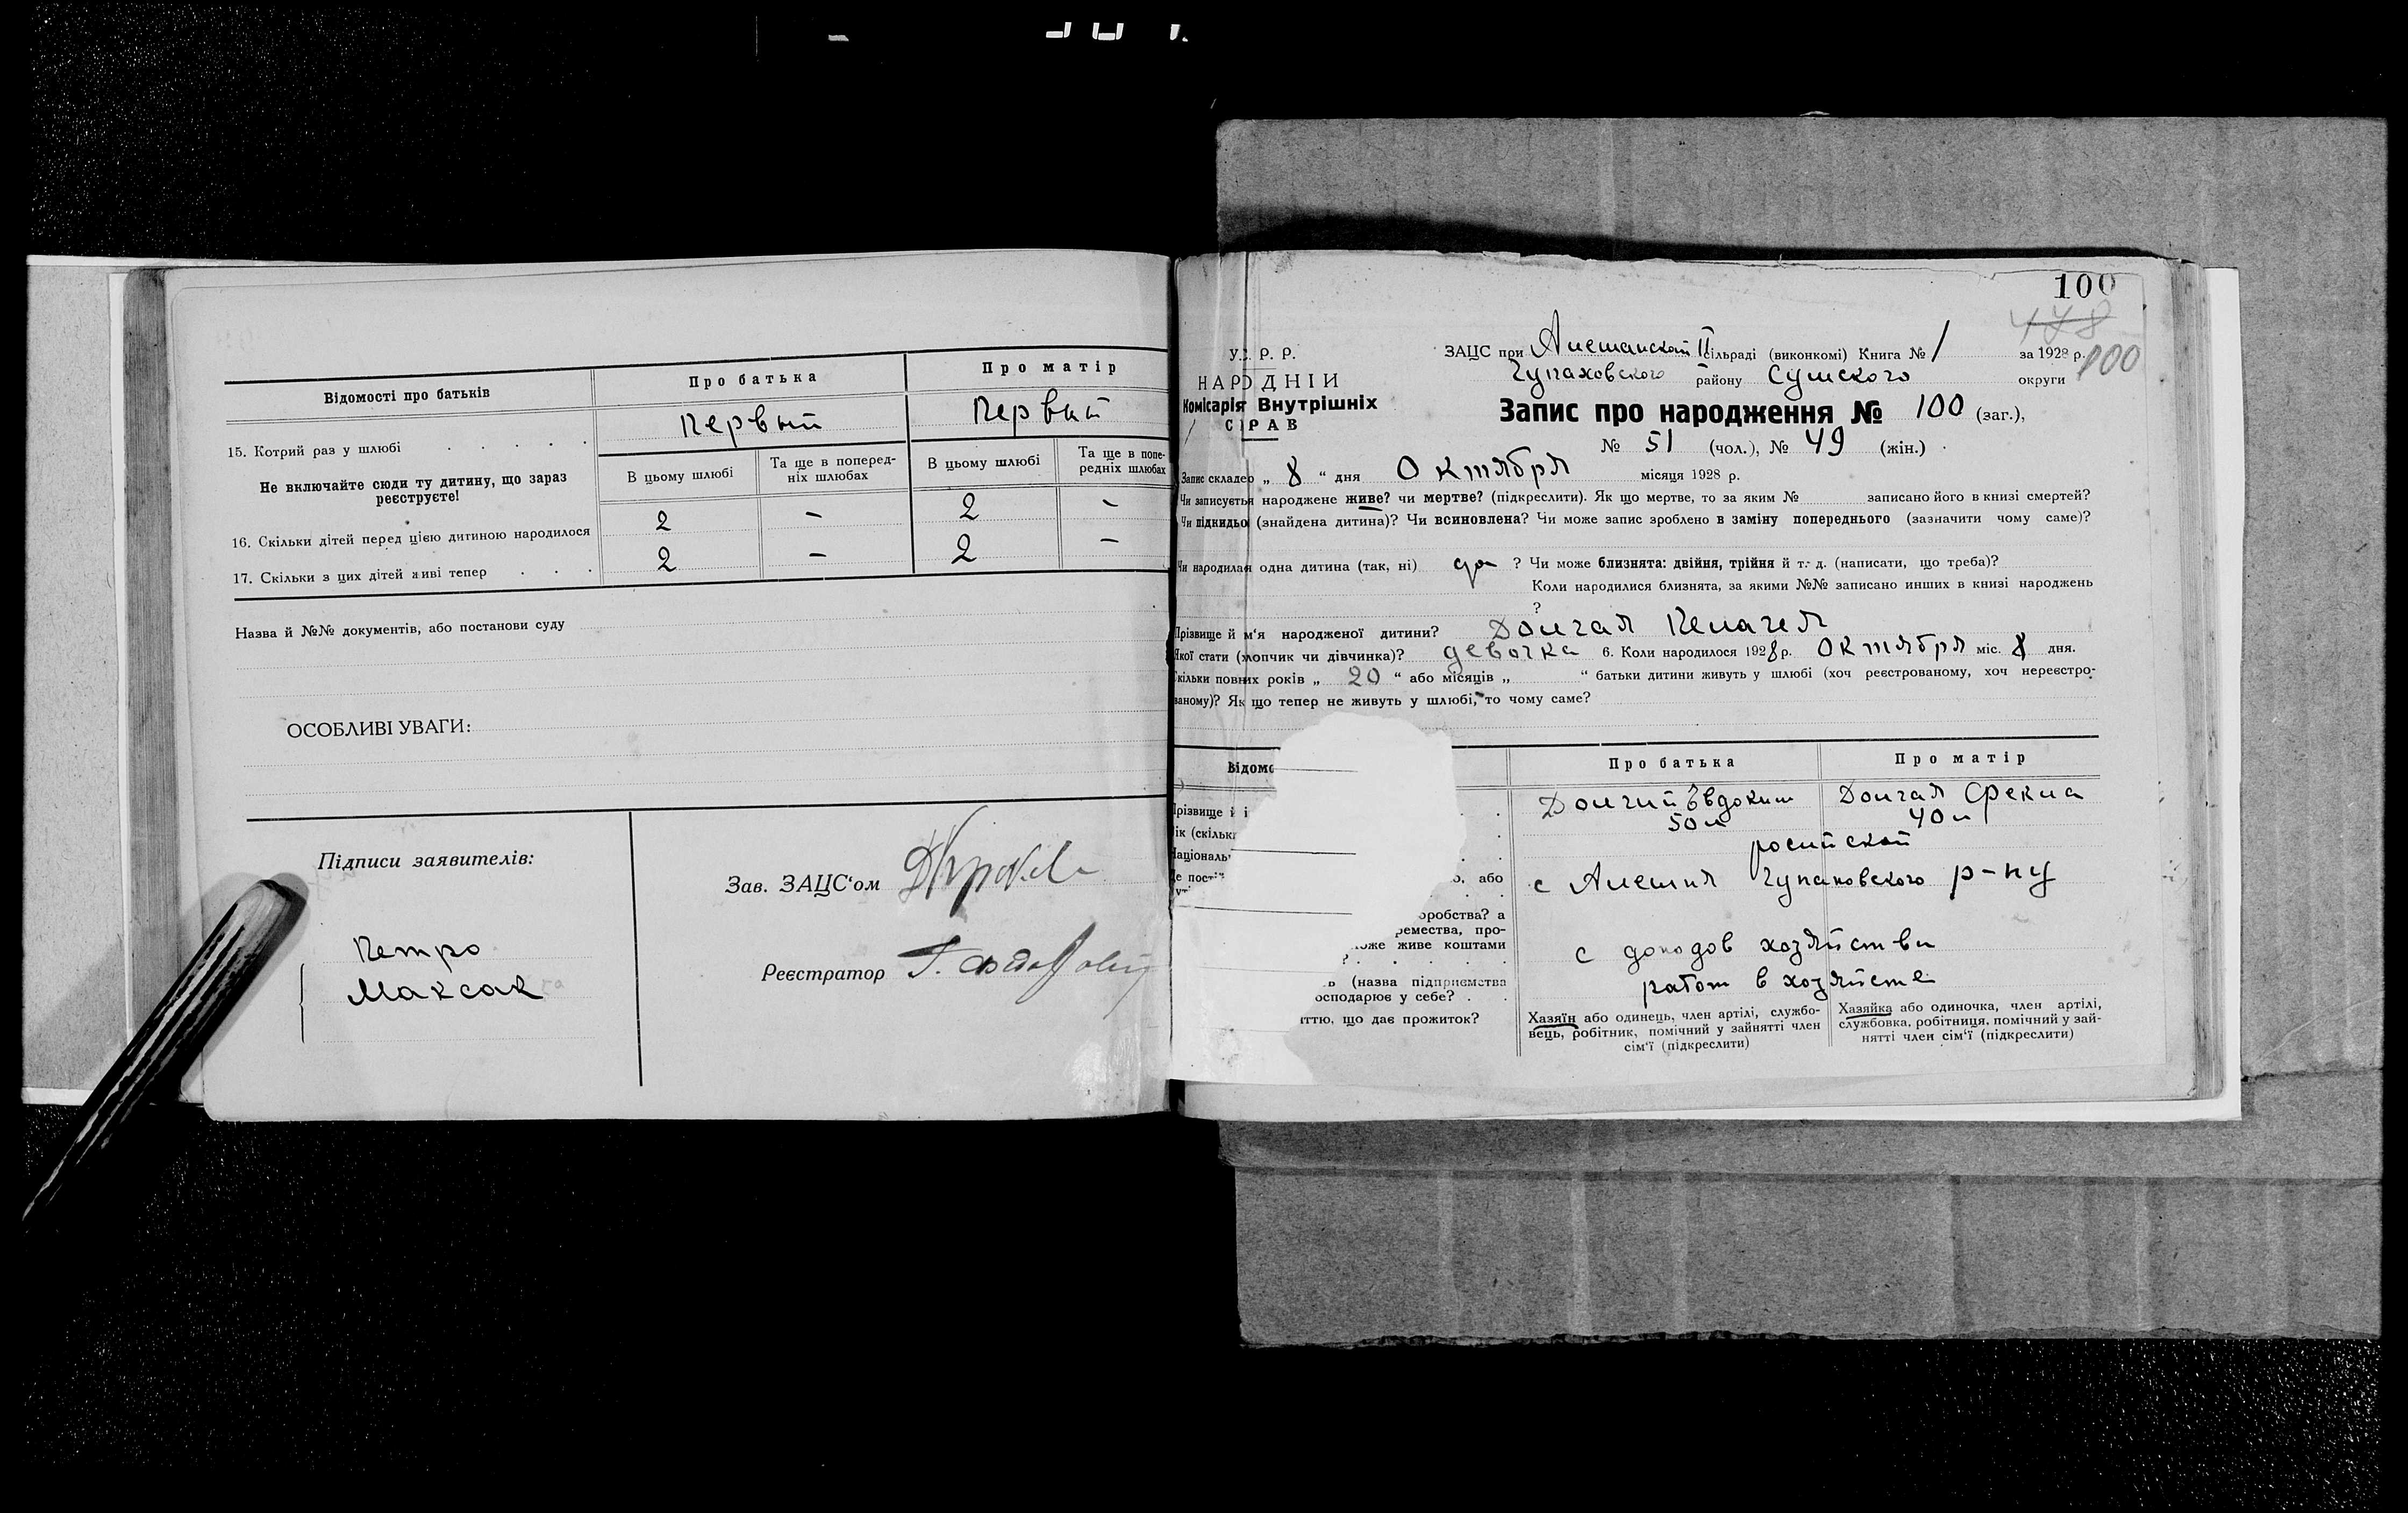 Відомості про батьків
Про батька
Про матір
15. Котрий раз у шлюбі
Первый
Первый
Не включайте сюди ту дитину, що зараз
реєструєте!
В цьому шлюбі
Та ще в поперед-
ніх шлюбах
В цьому шлюбі
Та ще в попе-
редніх шлюбах
16. Скільки дітей перед цією дитиною народилося
2
-
2
-
17. Скільки з цих дітей живі тепер
2
-
2
-
Назва й №№ документів, або постанови суду
ОСОБЛИВІ УВАГИ:
Підписи заявителів:
Петро
Максак
Зав. ЗАЦС'ом
Реєстратор
100
448
100
У.С. Р. Р.
НАРОДНІЙ
Комісарія Внутрішніх
СПРАВ
ЗАЦС при Алешанской II сільраді (виконкомі) Книга № 1 за 1928 р.
Чупаховского району Сумского округи
Запис про народження № 100 (заг.),
№ 51 (чол.), № 49 (жін.)
Запис складено „ 8 “ дня Октября місяця 1928 р.
Чи записується народжене живе? чи мертве? (підкреслити). Як що мертве, то за яким № записано його в книзі смертей?
Чи підкидьо (знайдена дитина)? Чи всиновлена? Чи може запис зроблено в заміну попереднього (зазначити чому саме)?
Чи народилая одна дитина (так, ні) да ? Чи може близнята: двійня, трійня й т. д. (написати, що треба)?
Коли народилися близнята, за якими №№ записано инших в книзі народжень
?
Прізвище й м'я народженої дитини? Долгая Пелагея
Якої стати (хлопчик чи дівчинка)? девочка 6. Коли народилося 1928 р. Октября міс. 8 дня.
Скільки повних років „ 20 “ або місяців „ “ батьки дитини живуть у шлюбі (хоч реєстрованому, хоч нереєстро-
ваному)? Як що тепер не живуть у шлюбі, то чому саме?
Відомо
Про батька
Про матір
Прізвище й і
Долгий Евдоким
Долгая Фекла
ік (скільки
50 л
40 л
Національн
росийской
Де пості
о, або
с Алешня Чупаховского р-ну
оробства? а
ремества, про-
може живе коштами
?
с доходов хозяйства
ь (назва підприємства
осподарює у себе?
работ в хозяйстве
ттю, що дає прожиток?
Хазяїн або одинець, член артілі, службо-
вець, робітник, помічний у зайнятті член
сім'ї (підкреслити)
Хазяйка або одиночка, член артілі,
службовка, робітниця, помічний у зай-
нятті член сім'ї (підкреслити)